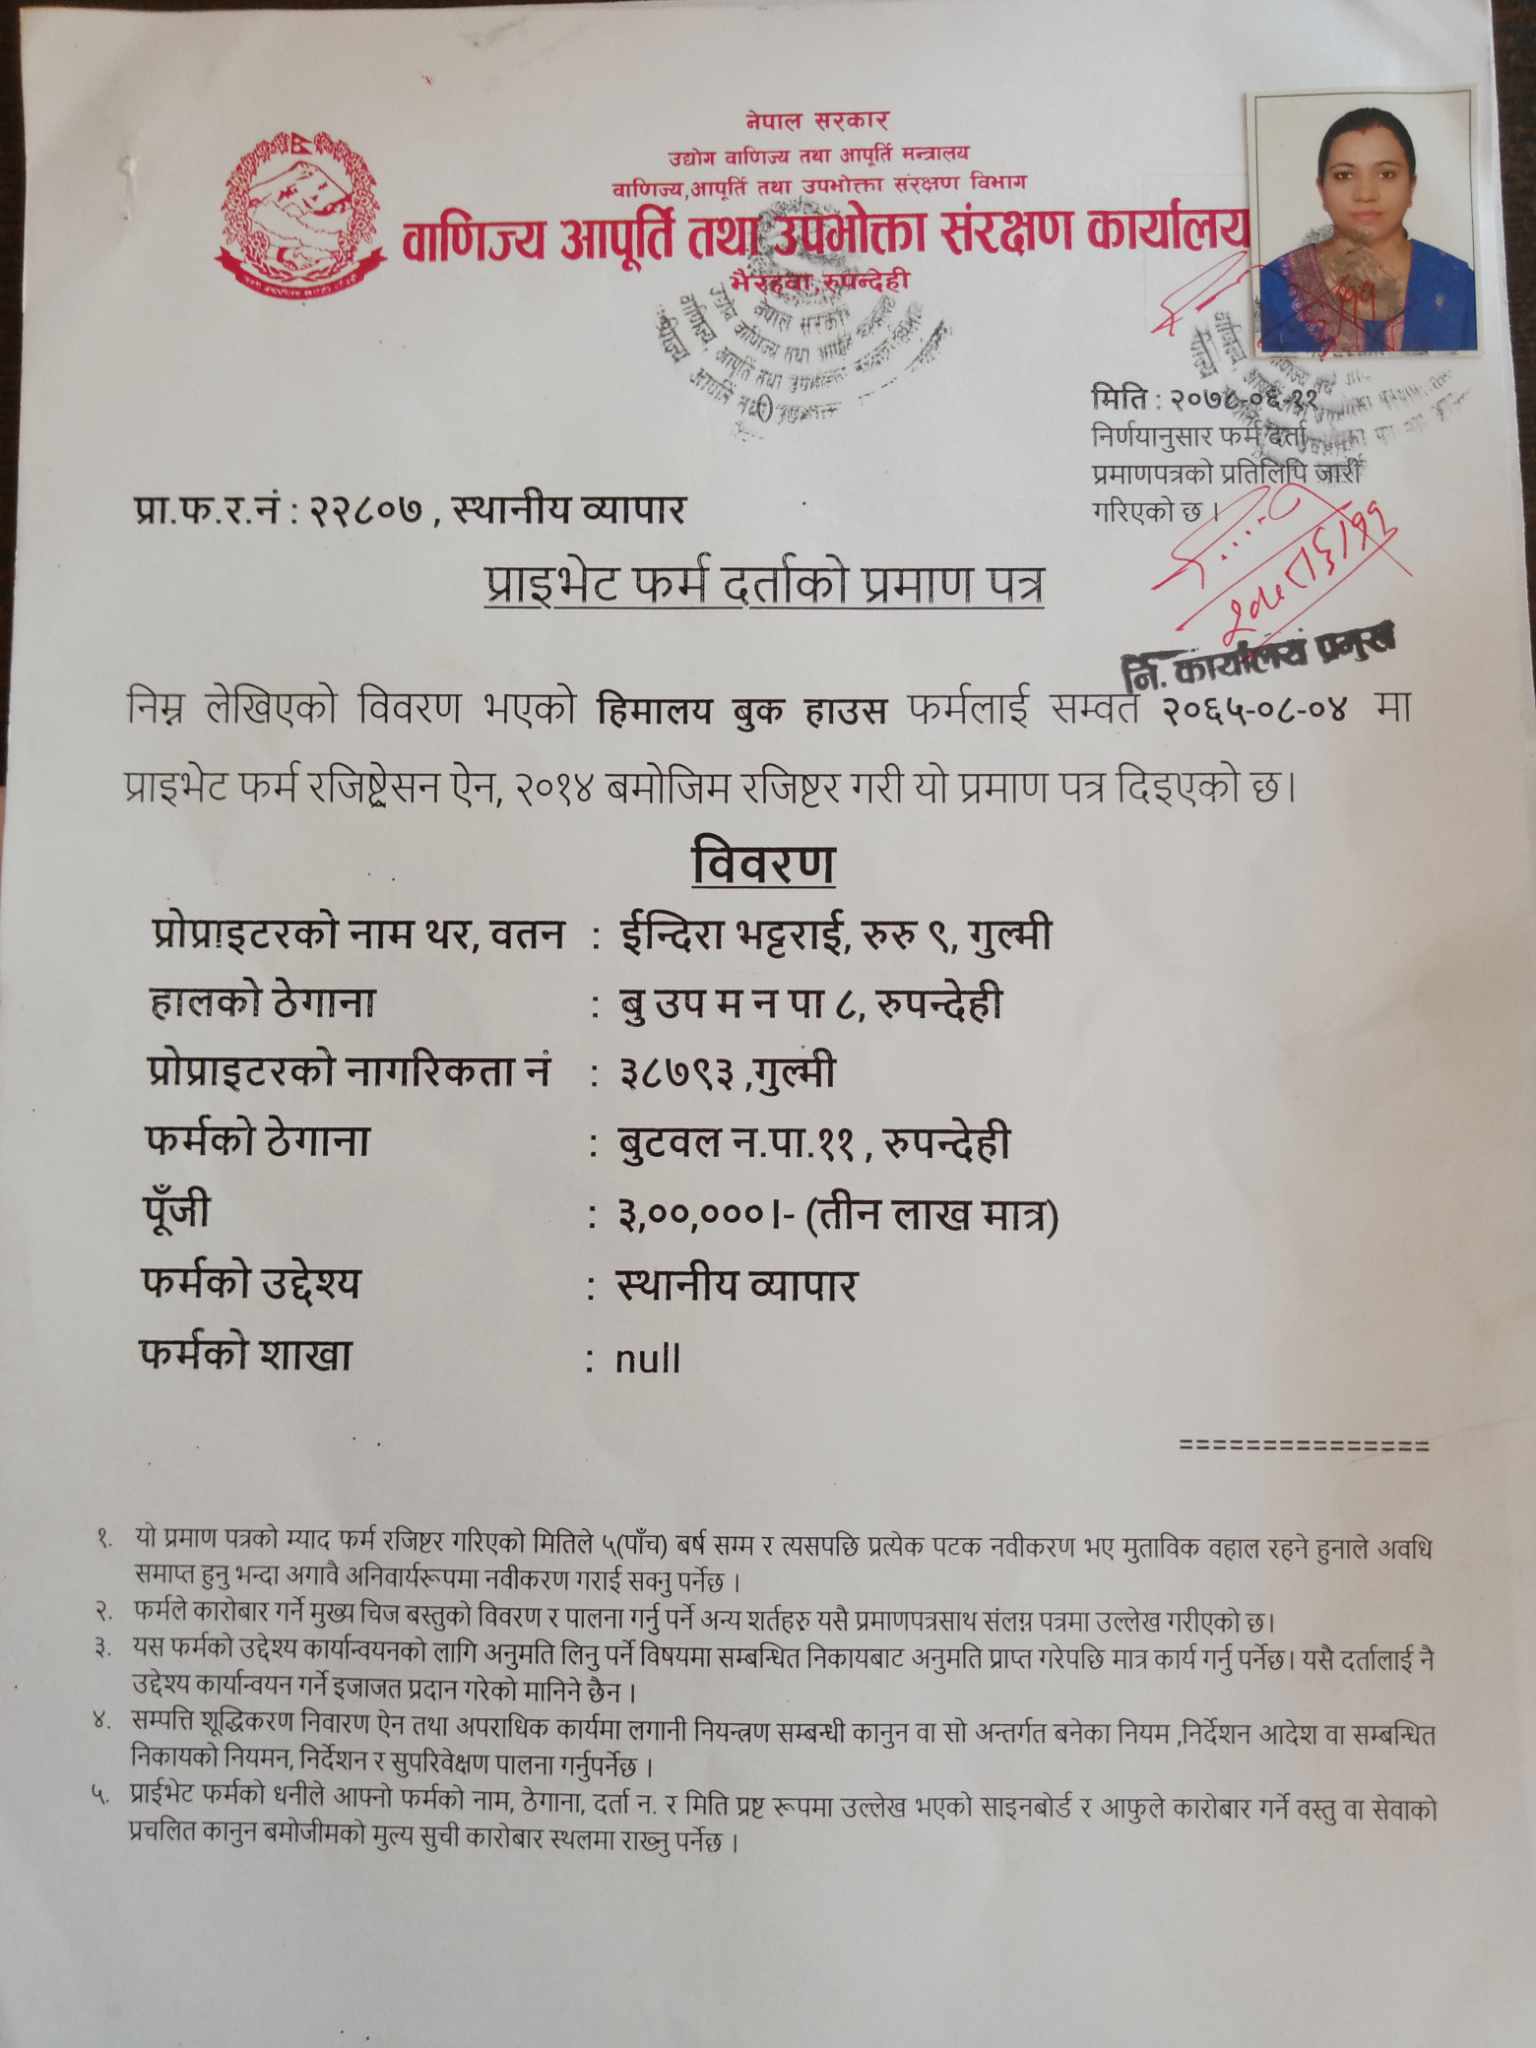 नेपाल सरकार
उद्योग वाणिज्य तथा आपूर्ति मन्त्रालय
वाणिज्य,आपूर्ति तथा उपभोक्ता संरक्षण विभाग
वाणिज्य आपूर्ति तथा उपभोक्ता संरक्षण कार्यालय
भैरहवा,रुपन्देही
मिति : २०७८-०६-११
निर्णयानुसार फर्म दर्ता
प्रमाणपत्रको प्रतिलिपि जारी
गरिएको छ ।
नि. कार्यालय प्रमुख
प्रा.फ.र.नं : २२८०७ , स्थानीय व्यापार
प्राइभेट फर्म दर्ताको प्रमाण पत्र
निम्न लेखिएको विवरण भएको हिमालय बुक हाउस फर्मलाई सम्वत २०६५-०८-०४ मा
प्राइभेट फर्म रजिष्ट्रेसन ऐन, २०१४ बमोजिम रजिष्टर गरी यो प्रमाण पत्र दिइएको छ।
विवरण
प्रोप्राइटरको नाम थर, वतन : ईन्दिरा भट्टराई, रुरु ९, गुल्मी
हालको ठेगाना : बु उप म न पा ८, रुपन्देही
प्रोप्राइटरको नागरिकता नं : ३८७९३ ,गुल्मी
फर्मको ठेगाना : बुटवल न.पा.११ , रुपन्देही
पूँजी : ३,००,००० ।- (तीन लाख मात्र)
फर्मको उद्देश्य : स्थानीय व्यापार
फर्मको शाखा : null
===============
१. यो प्रमाण पत्रको म्याद फर्म रजिष्टर गरिएको मितिले ५(पाँच) बर्ष सम्म र त्यसपछि प्रत्येक पटक नवीकरण भए मुताविक वहाल रहने हुनाले अवधि
समाप्त हुनु भन्दा अगावै अनिवार्यरूपमा नवीकरण गराई सक्नु पर्नेछ ।
२. फर्मले कारोबार गर्ने मुख्य चिज बस्तुको विवरण र पालना गर्नु पर्ने अन्य शर्तहरु यसै प्रमाणपत्रसाथ संलग्न पत्रमा उल्लेख गरीएको छ।
३. यस फर्मको उद्देश्य कार्यान्वयनको लागि अनुमति लिनु पर्ने विषयमा सम्बन्धित निकायबाट अनुमति प्राप्त गरेपछि मात्र कार्य गर्नु पर्नेछ। यसै दर्तालाई नै
उद्देश्य कार्यान्वयन गर्ने इजाजत प्रदान गरेको मानिने छैन ।
४. सम्पत्ति शूद्धिकरण निवारण ऐन तथा अपराधिक कार्यमा लगानी नियन्त्रण सम्बन्धी कानुन वा सो अन्तर्गत बनेका नियम ,निर्देशन आदेश वा सम्बन्धित
निकायको नियमन, निर्देशन र सुपरिवेक्षण पालना गर्नुपर्नेछ ।
५. प्राईभेट फर्मको धनीले आफ्नो फर्मको नाम, ठेगाना, दर्ता न. र मिति प्रष्ट रूपमा उल्लेख भएको साइनबोर्ड र आफुले कारोबार गर्ने वस्तु वा सेवाको
प्रचलित कानुन बमोजीमको मुल्य सुची कारोबार स्थलमा राख्नु पर्नेछ ।